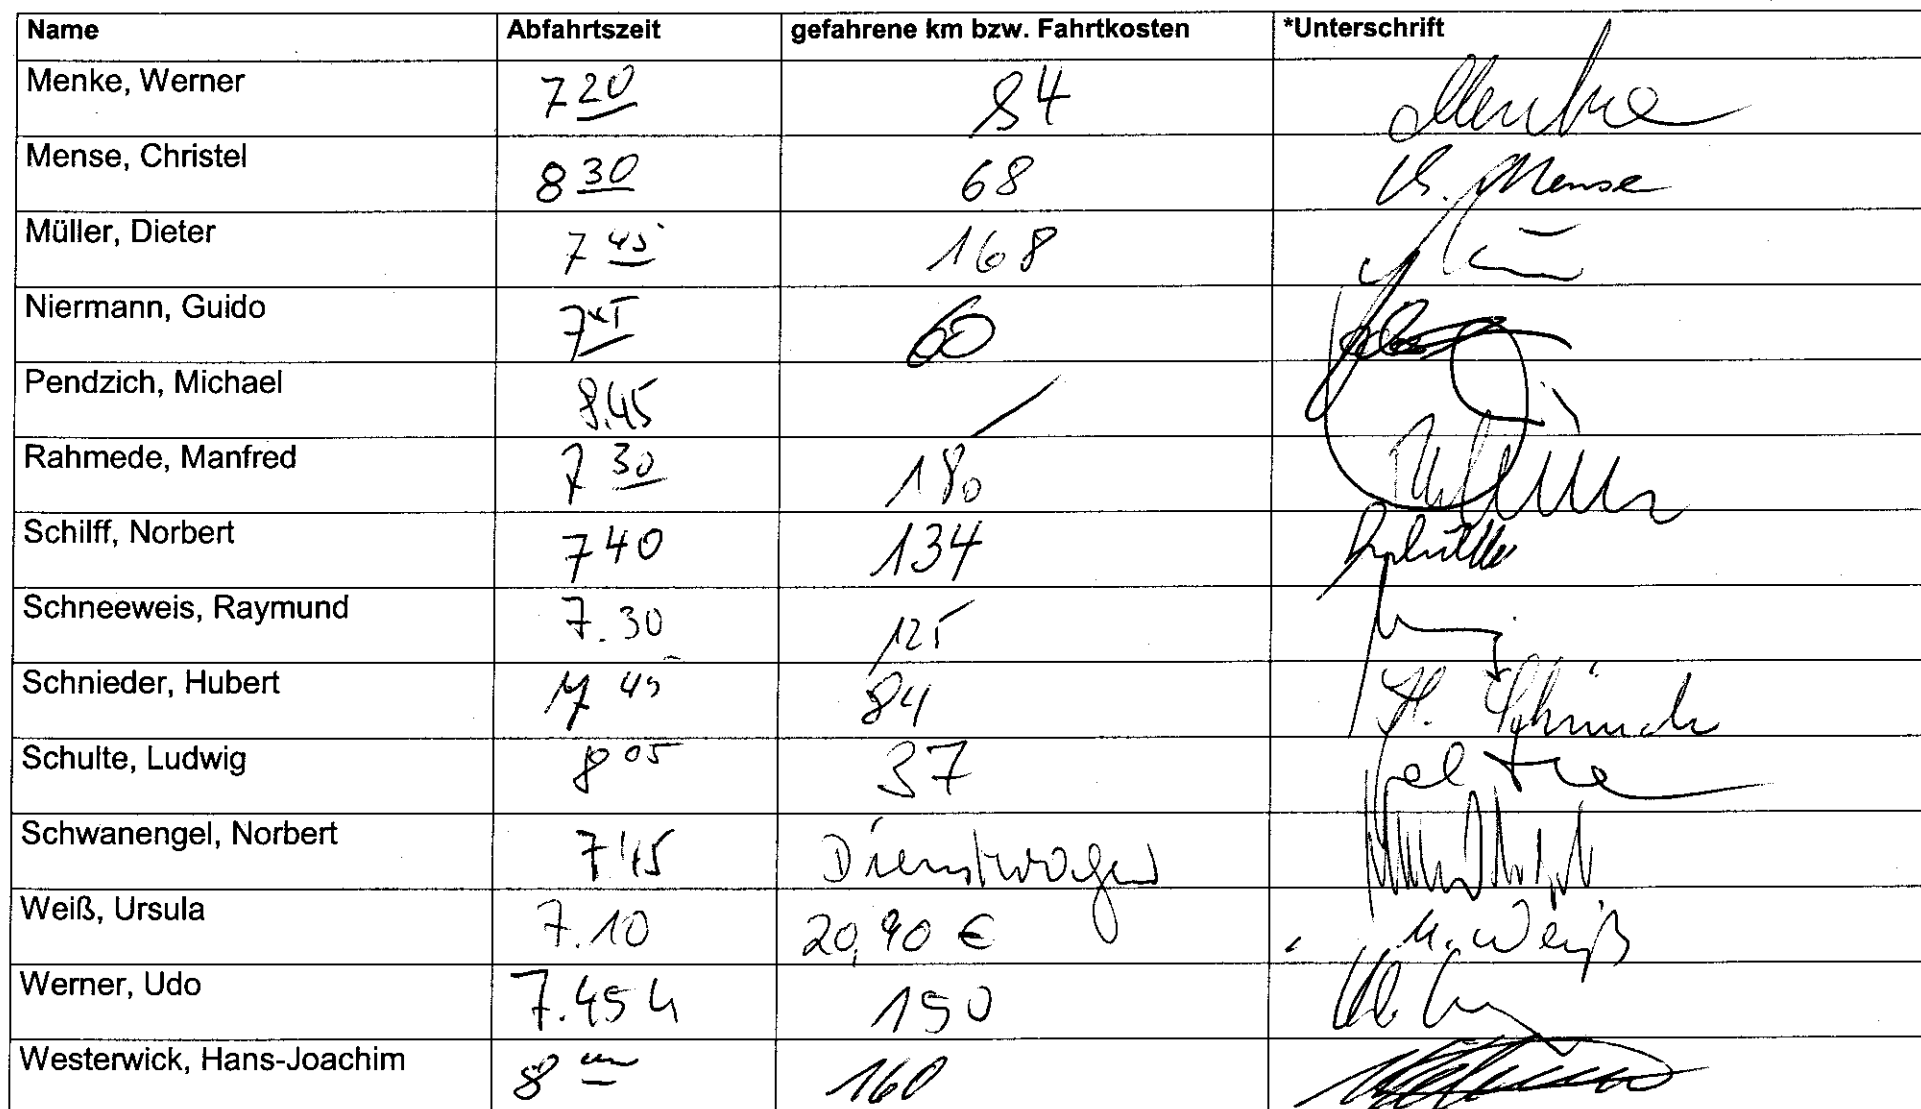 Name Abfahrtszeit gefahrene km bzw. Fahrtkosten *Unterschrift
Menke, Werner 7 20 84 Menke
Mense, Christel 8 30 68 Ch. Mense
Müller, Dieter 7 45 168
Niermann, Guido 7 45 60
Pendzich, Michael 8.45 /
Rahmede, Manfred 7 30 180
Schilff, Norbert 7 40 134
Schneeweis, Raymund 7.30 125
Schnieder, Hubert 7 45 84 H. Schnieder
Schulte, Ludwig 8 05 37
Schwanengel, Norbert 7.45 Dienstwagen
Weiß, Ursula 7.10 20,90 € U. Weiß
Werner, Udo 7.45 h 150
Westerwick, Hans-Joachim 8 160